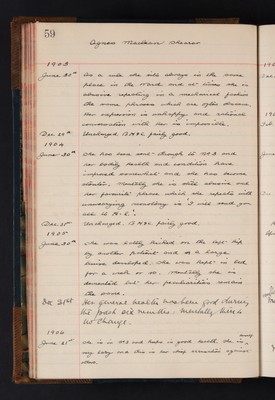 59
Agnes Maclean Shearer
1903
June 30th As a rule she sits always in the same
place in the ward and at times she is
abusive repeating in a mechanical fashion
the same phrases which are often obscene.
Her expression is unhappy and rational
conversation with her is impossible.
Dec. 29th Unchanged. B.H. & C. fairly good.
1904
June 30th She has been sent through to W.3. and
her bodily health and condition have
improved somewhat and she has become
stouter. Mentally she is still abusive and
her favourite phrase which she repeats with
unvarying monotony is "I will send you
all to H-l."
Dec. 25th Unchanged. B.H. & C. fairly good.
1905
June 30th She was bitten on the left hip
by another patient and as a large
bruise developed she was kept in bed
for a week or so. Mentally she is
demented but her peculiarities remain
the same.
Dec 31st Her general health has been good during
the past six months. Mentally there is
no change.
1906
June 21st She is in W.3 and keeps in good health. She is
very lazy and this is her chief against